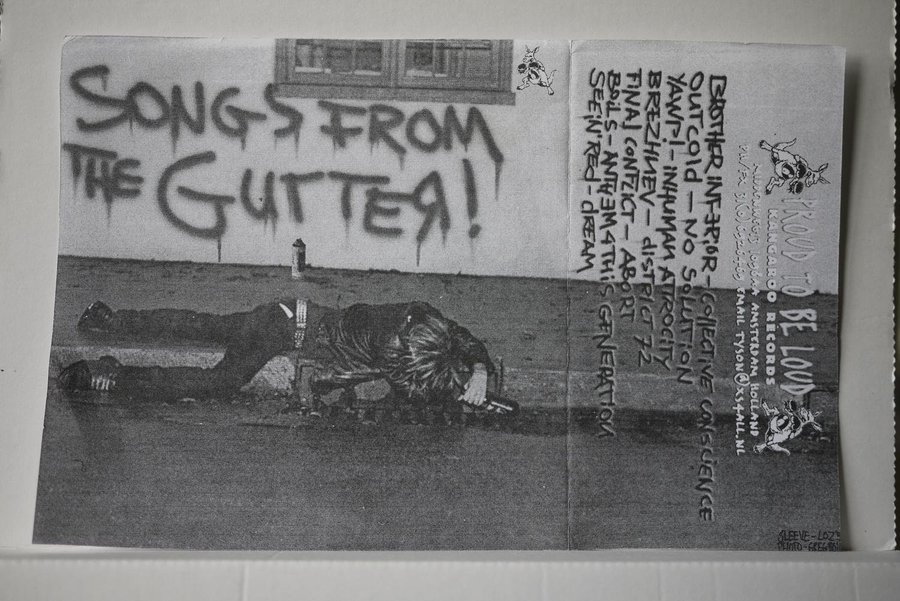 SONGS FROM
THE GUTTER!
BROTHER INFERIOR - COLLECTIVE CONSCIENCE
OUTCOLD - NO SOLUTION
YAWP! - INHUMAN ATROCITY
BREZHNEV - district 72
FINAL CONFLICT - ABORT
BOILS - ANTHEM 4 THIS GENERATION
SEEIN'RED - DREAM
PROUD TO BE LOUD
KANGAROO RECORDS
AMSTERDAM, HOLLAND
EMAIL TYSON@XS4ALL.NL
SLEEVE - LOZ
PHOTO - GREG